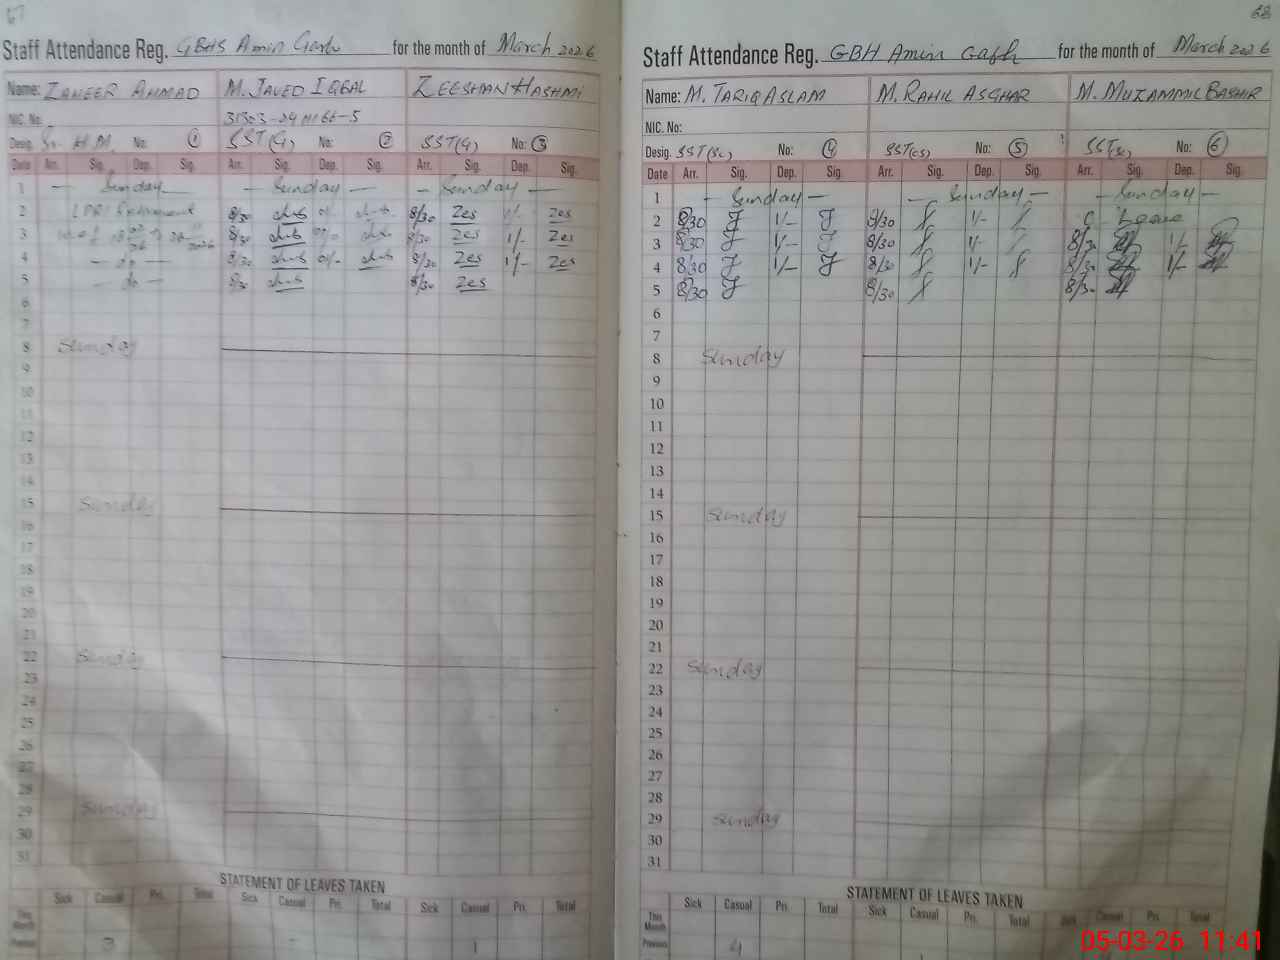 67
Staff Attendance Reg. GBHS Amin Garh for the month of March 2026
Name: ZAHEER AHMAD M. JAVED IQBAL ZEESHAN HASHMI
NIC. No.
Desig. Sr. H.M. No: 1 SST(G) No: 2 SST(G) No: 3
Date Arr. Sig. Dep. Sig. Arr. Sig. Dep. Sig. Arr. Sig. Dep. Sig.
1 — Sunday — — Sunday — — Sunday —
2 8/30 8/30 Zes 1/- Zes
3 8/30 8/30 Zes 1/- Zes
4 — do — 8/30 8/30 Zes 1/- Zes
5 — do — 8/30 8/30 Zes
6
7
8 Sunday
9
10
11
12
13
14
15 Sunday
16
17
18
19
20
21
22 Sunday
23
24
25
26
27
28
29 Sunday
30
31
STATEMENT OF LEAVES TAKEN
Sick Casual Pri. Total Sick Casual Pri. Total Sick Casual Pri. Total
This Month
Previous 3 1
68
Staff Attendance Reg. GBH Amin Garh for the month of March 2026
Name: M. TARIQ ASLAM M. RAHIL ASGHAR M. MUZAMMIL BASHIR
NIC. No:
Desig. SST(Sc) No: 4 SST(CS) No: 5 SST(Sc) No: 6
Date Arr. Sig. Dep. Sig. Arr. Sig. Dep. Sig. Arr. Sig. Dep. Sig.
1 — Sunday — — Sunday — — Sunday —
2 8/30 1/- 8/30 1/- C- Leave
3 8/30 1/- 8/30 1/- 8/30 1/-
4 8/30 1/- 8/30 1/- 8/30 1/-
5 8/30 8/30 8/30
6
7
8 Sunday
9
10
11
12
13
14
15 Sunday
16
17
18
19
20
21
22 Sunday
23
24
25
26
27
28
29 Sunday
30
31
STATEMENT OF LEAVES TAKEN
Sick Casual Pri. Total Sick Casual Pri. Total Sick Casual Pri. Total
This Month
Previous 4
05-03-26 11:41